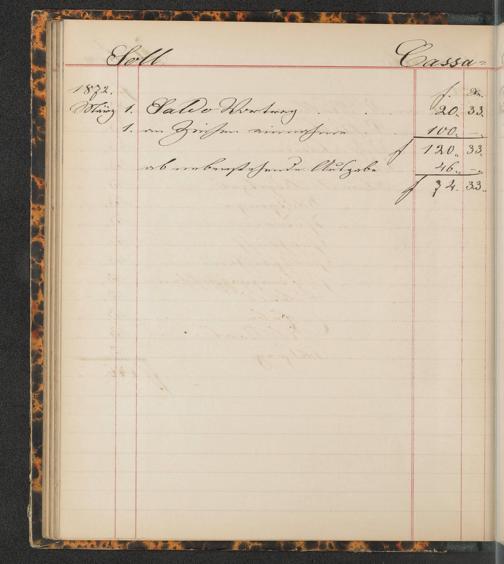 Soll Cassa-
1872. f. Xr.
März 1. Saldo Vortrag . . 20. 33.
1. an Zinsen einnahme 100. —.
f 120. 33.
ab nebenstehende Ausgabe 46. —.
f 74. 33.